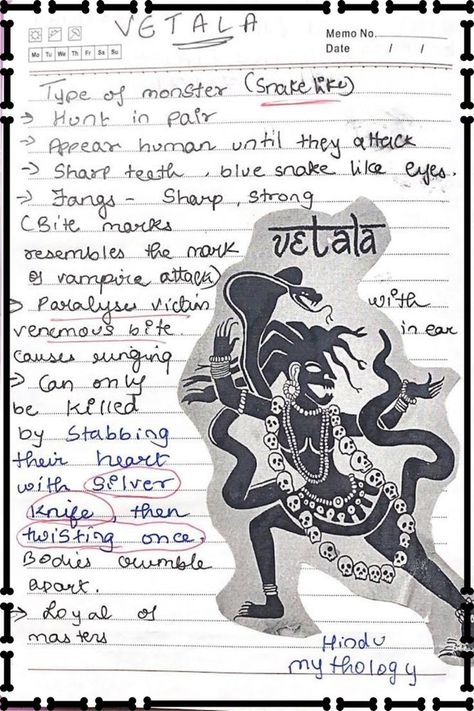 VETALA
Memo No.
Mo Tu We Th Fr Sa Su
Date / /
Type of monster (Snake like)
→ Hunt in pair
→ Appear human until they attack
→ Sharp teeth, blue snake like eyes.
→ Fangs - Sharp, strong
(Bite marks
resembles the mark
of vampire attack)
vetala
→ Paralyses victim with
venemous bite in ear
causes ringing
→ Can only
be killed
by Stabbing
their heart
with Silver
Knife, then
twisting once.
Bodies crumble
apart.
→ Loyal of
masters
Hindu
mythology